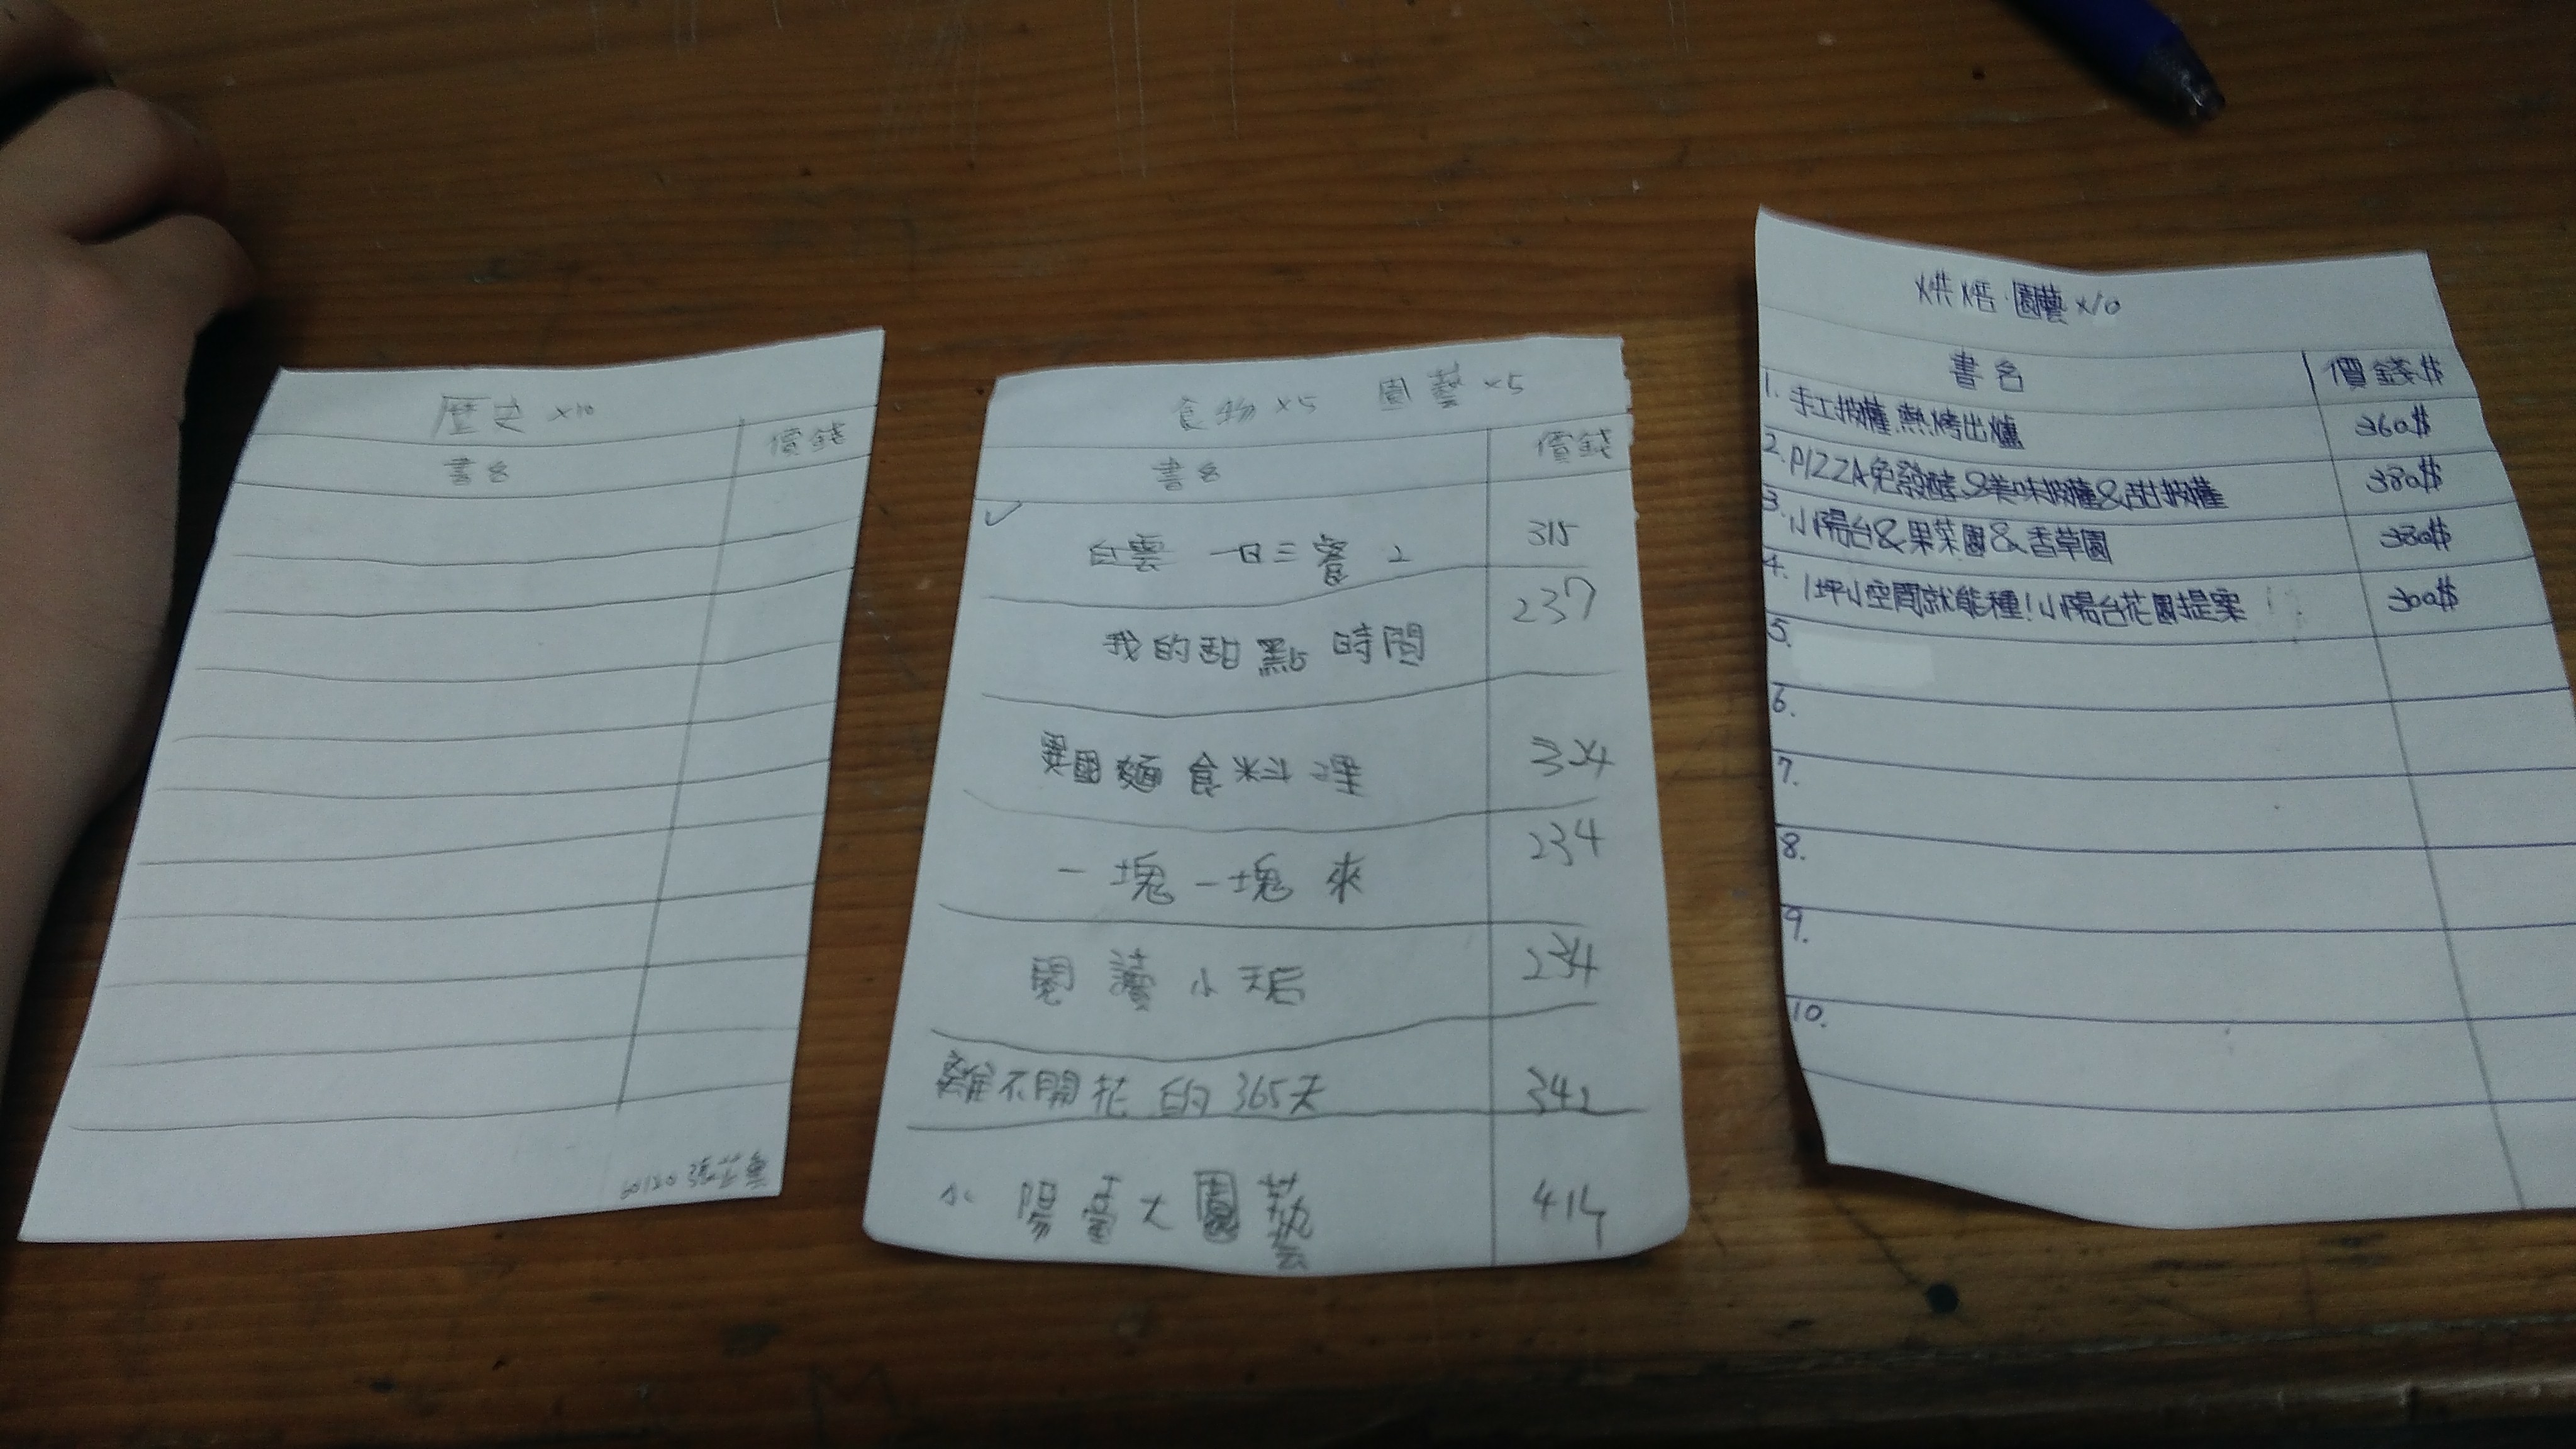 歷史 ×10
書名 價錢
60120 張芷
食物 ×5 園藝 ×5
書名 價錢
✓
白雲 一日三餐 2 315
我的甜點時間 237
異國麵食料理 324
一塊一塊來 234
閱讀小天后 234
離不開花的365天 342
小陽臺大園藝 414
烘焙·園藝×10
書名 價錢$
1. 手工披薩熱烤出爐 360$
2. PIZZA免發酵&美味披薩&甜披薩 380$
3. 小陽台&果菜園&香草園 380$
4. 1坪小空間就能種!小陽台花園提案 300$
5.
6.
7.
8.
9.
10.